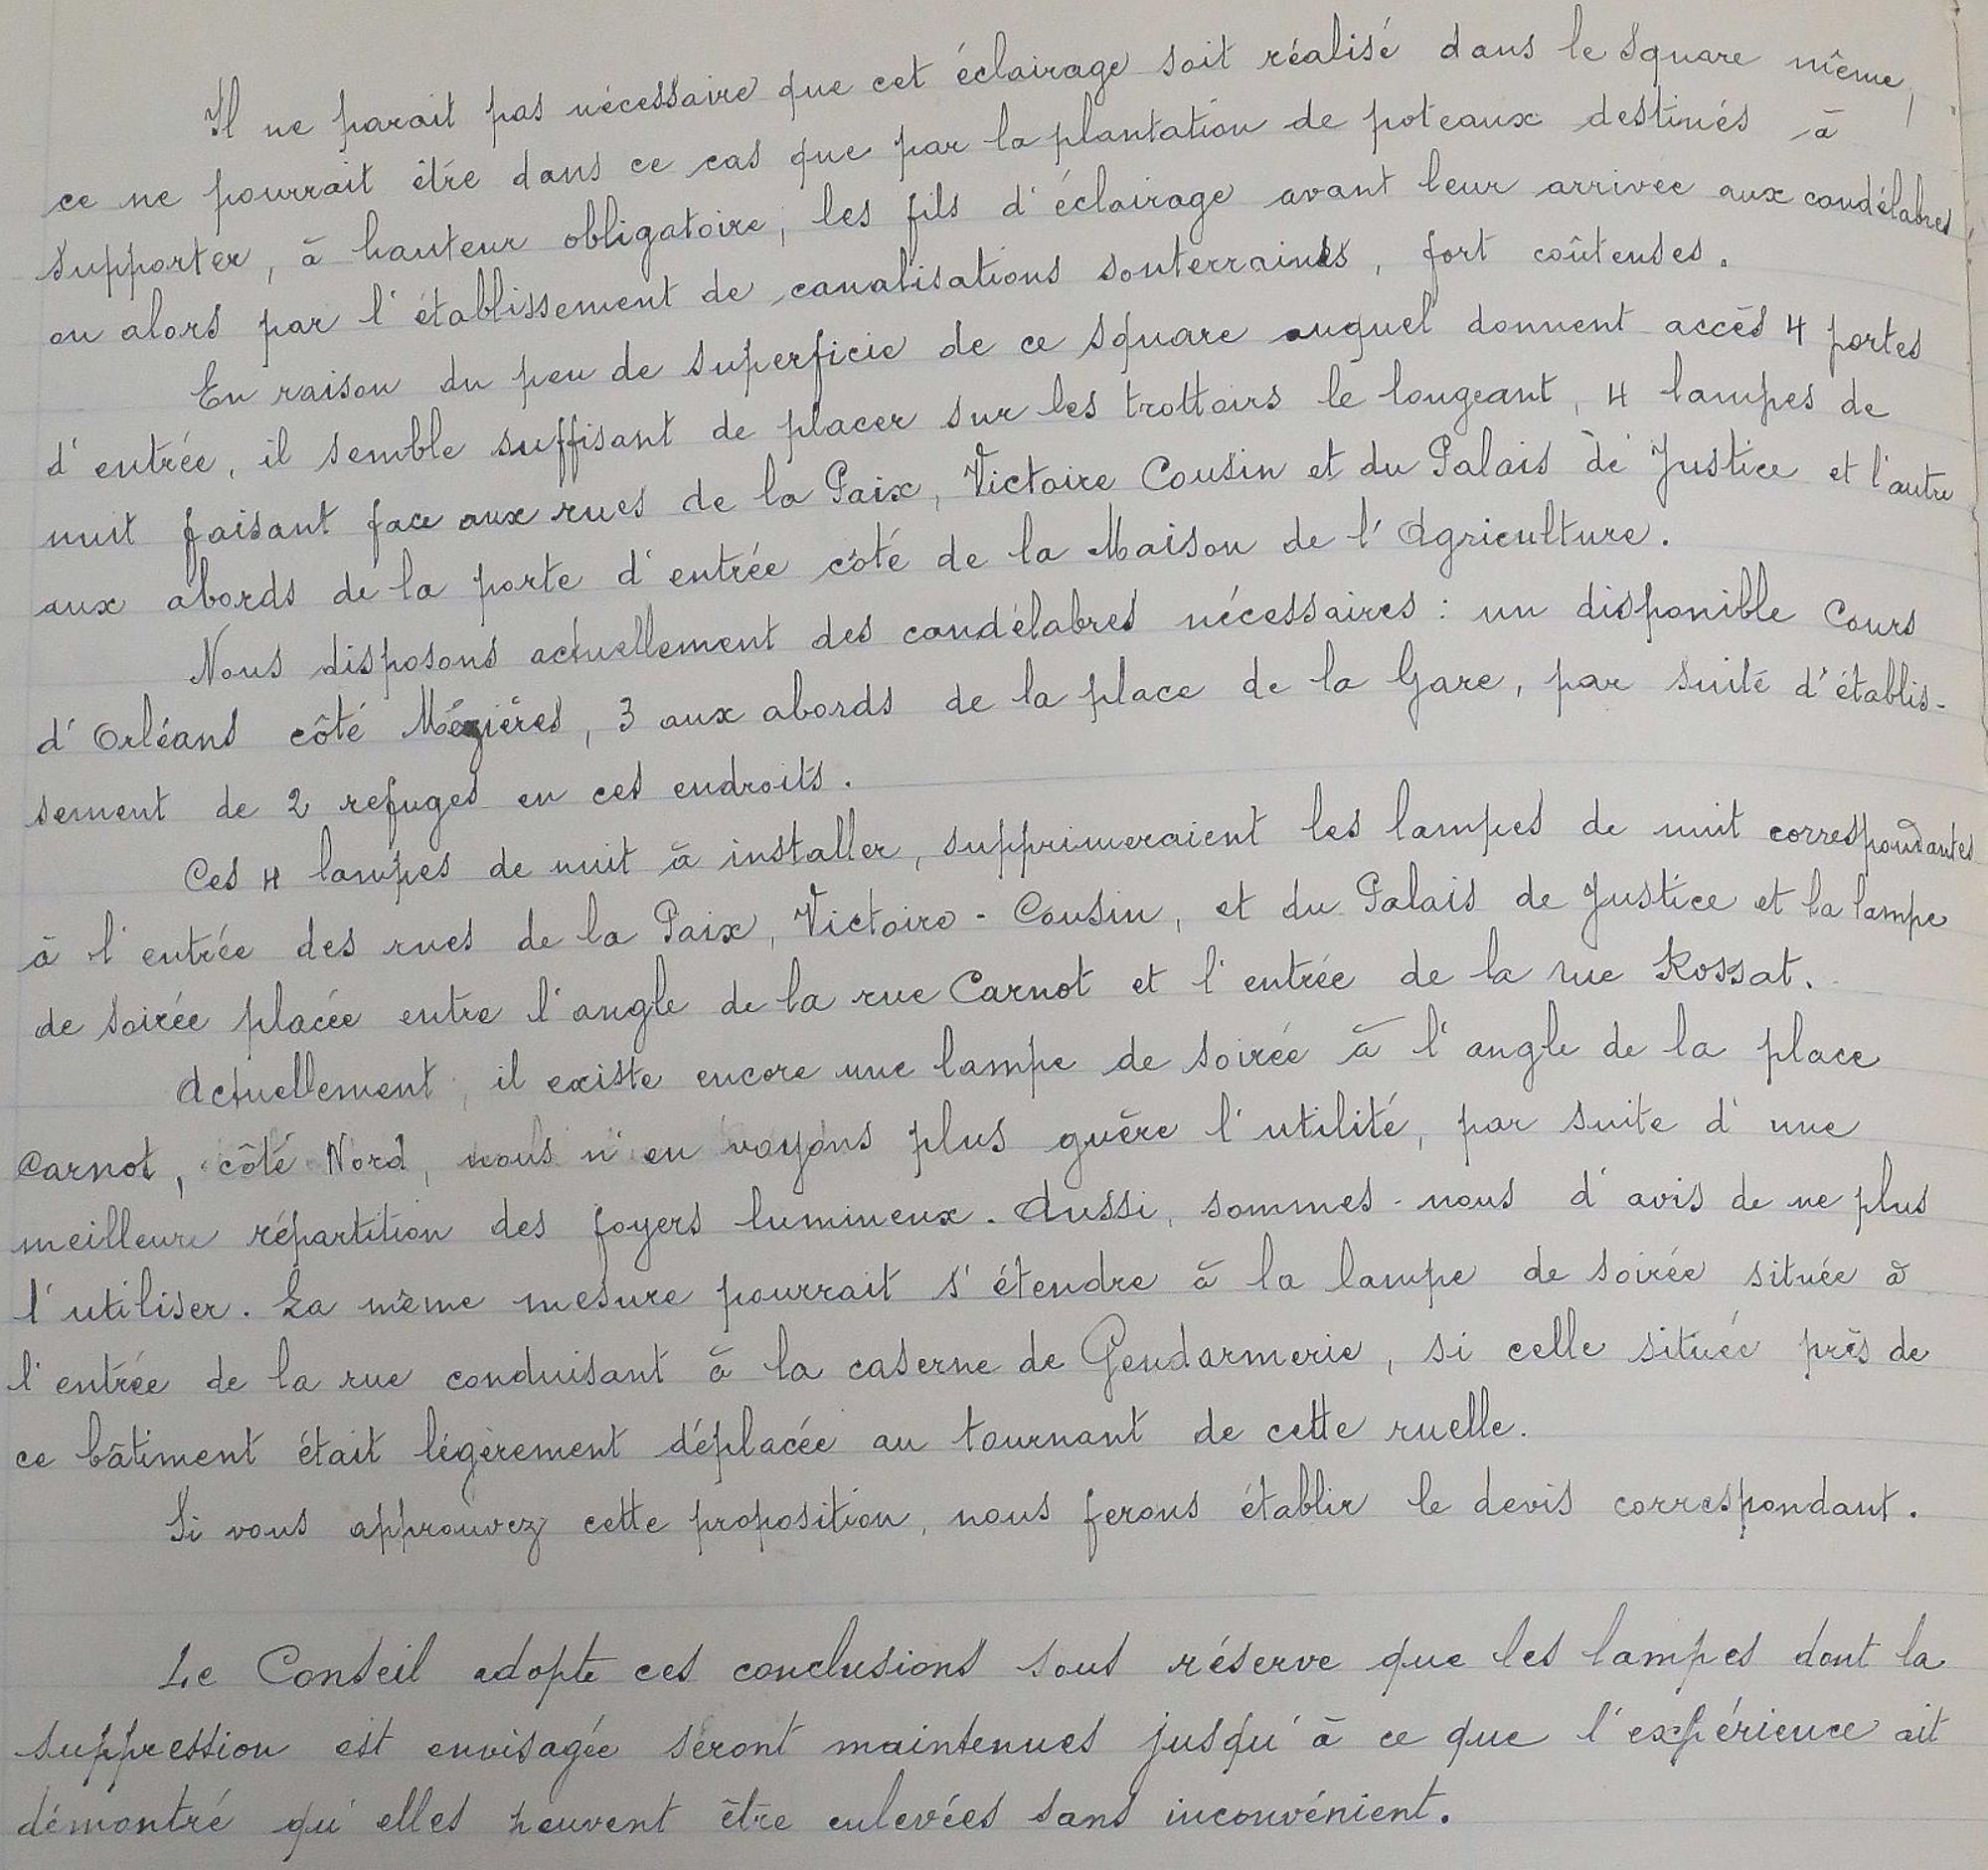 Il ne parait pas nécessaire que cet éclairage soit réalisé dans le square même,
ce ne pourrait être dans ce cas que par la plantation de poteaux destinés à
supporter, à hauteur obligatoire, les fils d'éclairage avant leur arrivée aux candélabres
ou alors par l'établissement de canalisations souterraines, fort coûteuses.
En raison du peu de superficie de ce square auquel donnent accès 4 portes
d'entrée, il semble suffisant de placer sur les trottoirs le longeant, 4 lampes de
nuit faisant face aux rues de la Paix, Victoire Cousin et du Palais de Justice et l'autre
aux abords de la porte d'entrée côté de la Maison de l'Agriculture.
Nous disposons actuellement des candélabres nécessaires : un disponible Cours
d'Orléans côté Mézières, 3 aux abords de la place de la Gare, par suite d'établis-
sement de 2 refuges en ces endroits.
Ces 4 lampes de nuit à installer, supprimeraient les lampes de nuit correspondantes
à l'entrée des rues de la Paix, Victoire-Cousin, et du Palais de Justice et la lampe
de soirée placée entre l'angle de la rue Carnot et l'entrée de la rue Rossat.
Actuellement, il existe encore une lampe de soirée à l'angle de la place
Carnot, côté Nord, nous n'en voyons plus guère l'utilité, par suite d'une
meilleure répartition des foyers lumineux. Aussi, sommes-nous d'avis de ne plus
l'utiliser. La même mesure pourrait s'étendre à la lampe de soirée située à
l'entrée de la rue conduisant à la caserne de Gendarmerie, si celle située près de
ce bâtiment était légèrement déplacée au tournant de cette ruelle.
Si vous approuvez cette proposition, nous ferons établir le devis correspondant.
Le Conseil adopte ces conclusions sous réserve que les lampes dont la
suppression est envisagée seront maintenues jusqu'à ce que l'expérience ait
démontré qu'elles peuvent être enlevées sans inconvénient.